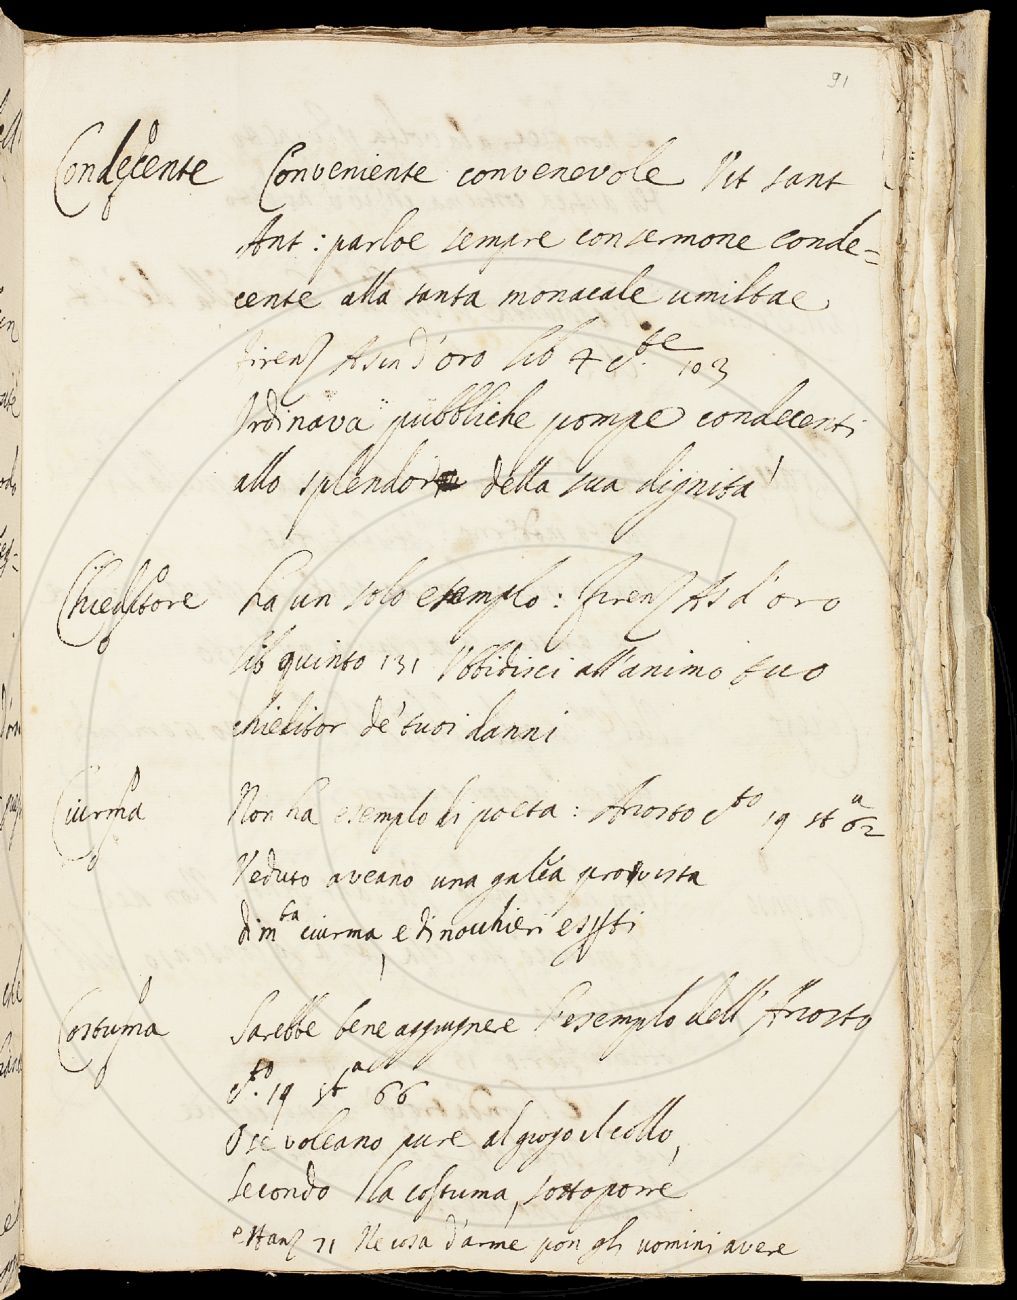 91
Condecente Conveniente convenevole Vit sant
Ant: parloe sempre con sermone conde=
cente alla santa monacale umiltae
Firenz Asin d'oro lib 4 c.te 103
Ordinava pubbliche pompe condecenti
allo splendor della sua dignita'
Chieditore ha un solo esemplo: Firenz As d'oro
lib quinto 131 Ubbidisci all'animo tuo
chieditor de' tuoi danni
Ciurma Non ha esemplo di poeta: Ariosto c.to 19 st.a 62
Veduto aveano una galea provista
di m.ta ciurma, e di nocchieri esp.ti
Costuma Sarebbe bene aggiugnere l'esemplo dell'Ariosto
c.to 19 st.a 66
O se voleano pure al giogo il collo,
Secondo lla costuma, sottoporre
e stanz 71 Ne cosa d'arme pon gli uomini avere